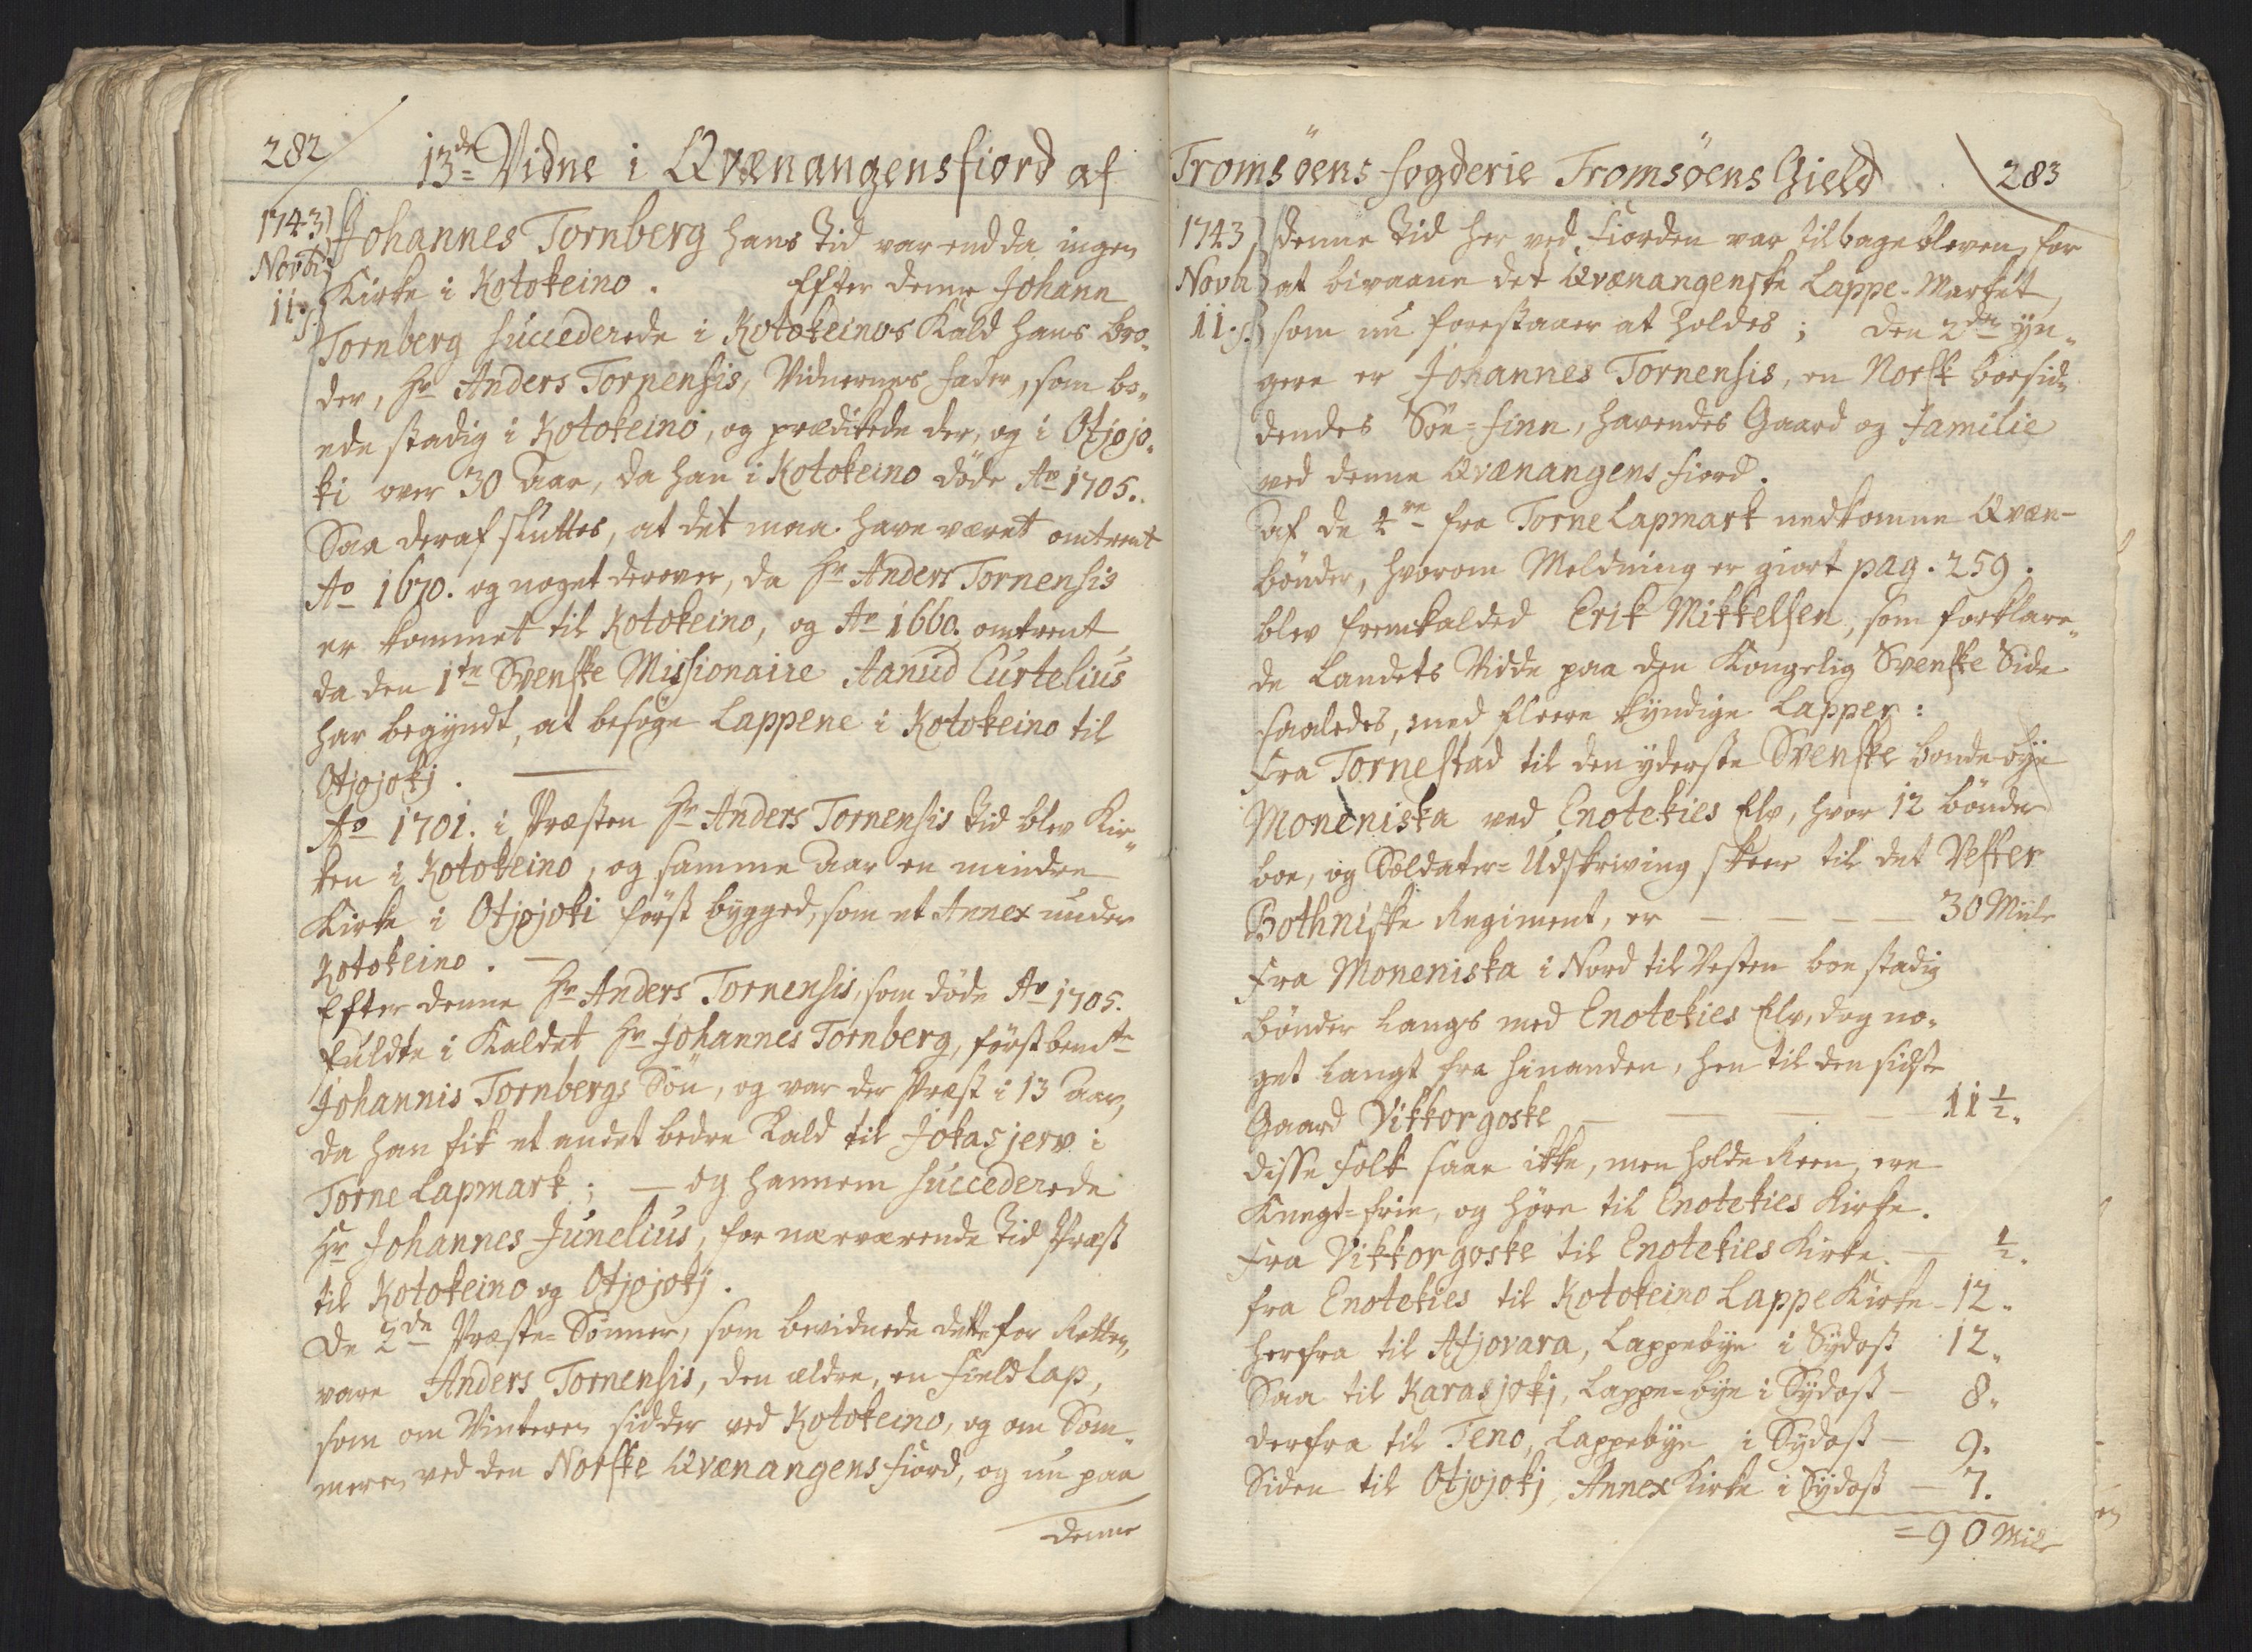 282
13de Vidne i Qvænangensfiord af
1743
Novbr
11.
Johannes Tornberg hans Tid var endda ingen
Kirke i Kotokeino. Efter denne Johann
Tornberg succederede i Kotokeinos Kald hans Bro-
der, Hr Anders Tornensis, Vidnernes Fader, som bo-
ede stadig i Kotokeino, og prædikede der, og i Otjojo-
ki over 30 Aar, da han i Kotokeino döde Ao 1705.
Saa deraf sluttes, at det maa have været omtrent
Ao 1670. og noget derover, da Hr Anders Tornensis
er kommet til Kotokeino, og Ao 1660. omtrent,
da den 1te Svenske Missionaire Aanud Curtelius
har begyndt, at besöge Lappene i Kotokeino til
Otjojokj.
Ao 1701. i Præsten Hr Anders Tornensis Tid blev Kir-
ken i Kotokeino, og samme Aar en mindre
Kirke i Otjojoki först bygged, som et Annex under
Kotokeino.
Efter denne Hr Anders Tornensis, som döde Ao 1705.
fuldte i Kaldet Hr Johannes Tornberg, förstbemte
Johannis Tornbergs Sön, og var der Præst i 13 Aar,
da han fik et andet bedre Kald til Jokasjerv i
Torne Lapmark; — og hannem succederede
Hr Johannes Junelius, for nærværende Tid Præst
til Kotokeino og Otjojokj.
De 2de Præste-Sönner, som bevidnede dette for Retten,
vare Anders Tornensis, den ældre, en Fieldlap,
som om Vinteren sidder ved Kotokeino, og om Som-
meren ved den Norske Qvænangens Fiord, og nu paa
denne
Tromsöens Fogderie Tromsöens Gield
283
1743
Novbr
11.
denne Tid her ved Fiorden var tilbage bleven, for
at bivaane det Qvænangenske Lappe-Market,
som nu forestaaer at holdes; den 2den yn-
gere er Johannes Tornensis, en Norsk boesid-
dendes Söe-Finn, havendes Gaard og Familie
ved denne Qvænangens Fiord.
Af de 4re fra Torne Lapmark nedkomne Qvæn-
bönder, hvorom Meldning er giort pag. 259.
blev fremkalded Erik Mikkelsen, som forklare-
de Landets Vidde paa den Kongelig Svenske Side
saaledes, med fleere kyndige Lapper:
Fra Tornestad til den yderste Svenske bondebye
Moneniska ved Enotekies Elv, hvor 12 bönder
boe, og Soldater-Udskriving skeer til det Vester
Bothniske Regiment, er — — — — 30 Miile
Fra Moneniska i Nord til Vesten boe stadig
bönder langs med Enotekies Elv, dog no-
get langt fra hinanden, hen til den sidste
Gaard Vikkorgoske — — — — 11 1/2.
disse Folk saae ikke, men holde Reen, ere
Knegt-frie, og höre til Enotekies Kirke.
Fra Vikkorgoske til Enotekies Kirke. — 1/2.
fra Enotekies til Kotokeino Lappe Kirke — 12.
herfra til Afjovara, Lappebye i Sydost 12.
Saa til Karasjokj, Lappe-bye i Sydost — 8.
derfra til Teno, Lappebye i Sydost — 9.
Siden til Otjojokj, Annex Kirke i Sydost — 7.
= 90 Miile